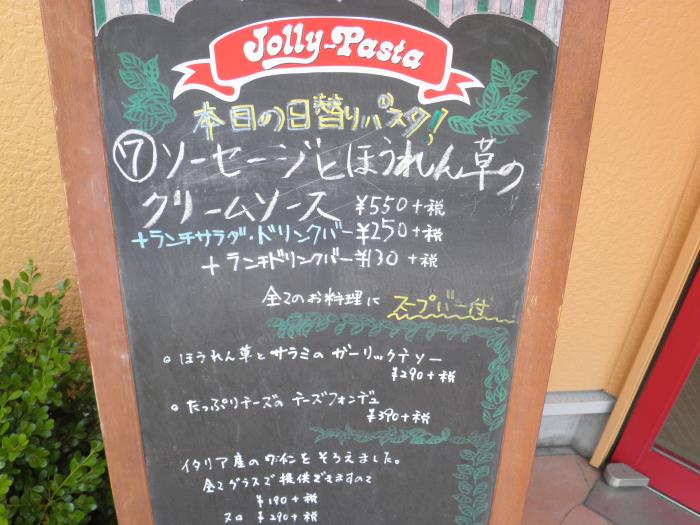 Jolly-Pasta
本日の日替りパスタ!
⑦ソーセージとほうれん草の
クリームソース ¥550+税
+ランチサラダ・ドリンクバー¥250+税
+ランチドリンクバー¥130+税
全てのお料理に スープバー付
○ほうれん草とサラミのガーリックソテー
¥290+税
○たっぷりチーズのチーズフォンデュ
¥390+税
イタリア産のワインをそろえました。
全てグラスで提供できますので
¥190+税
¥290+税